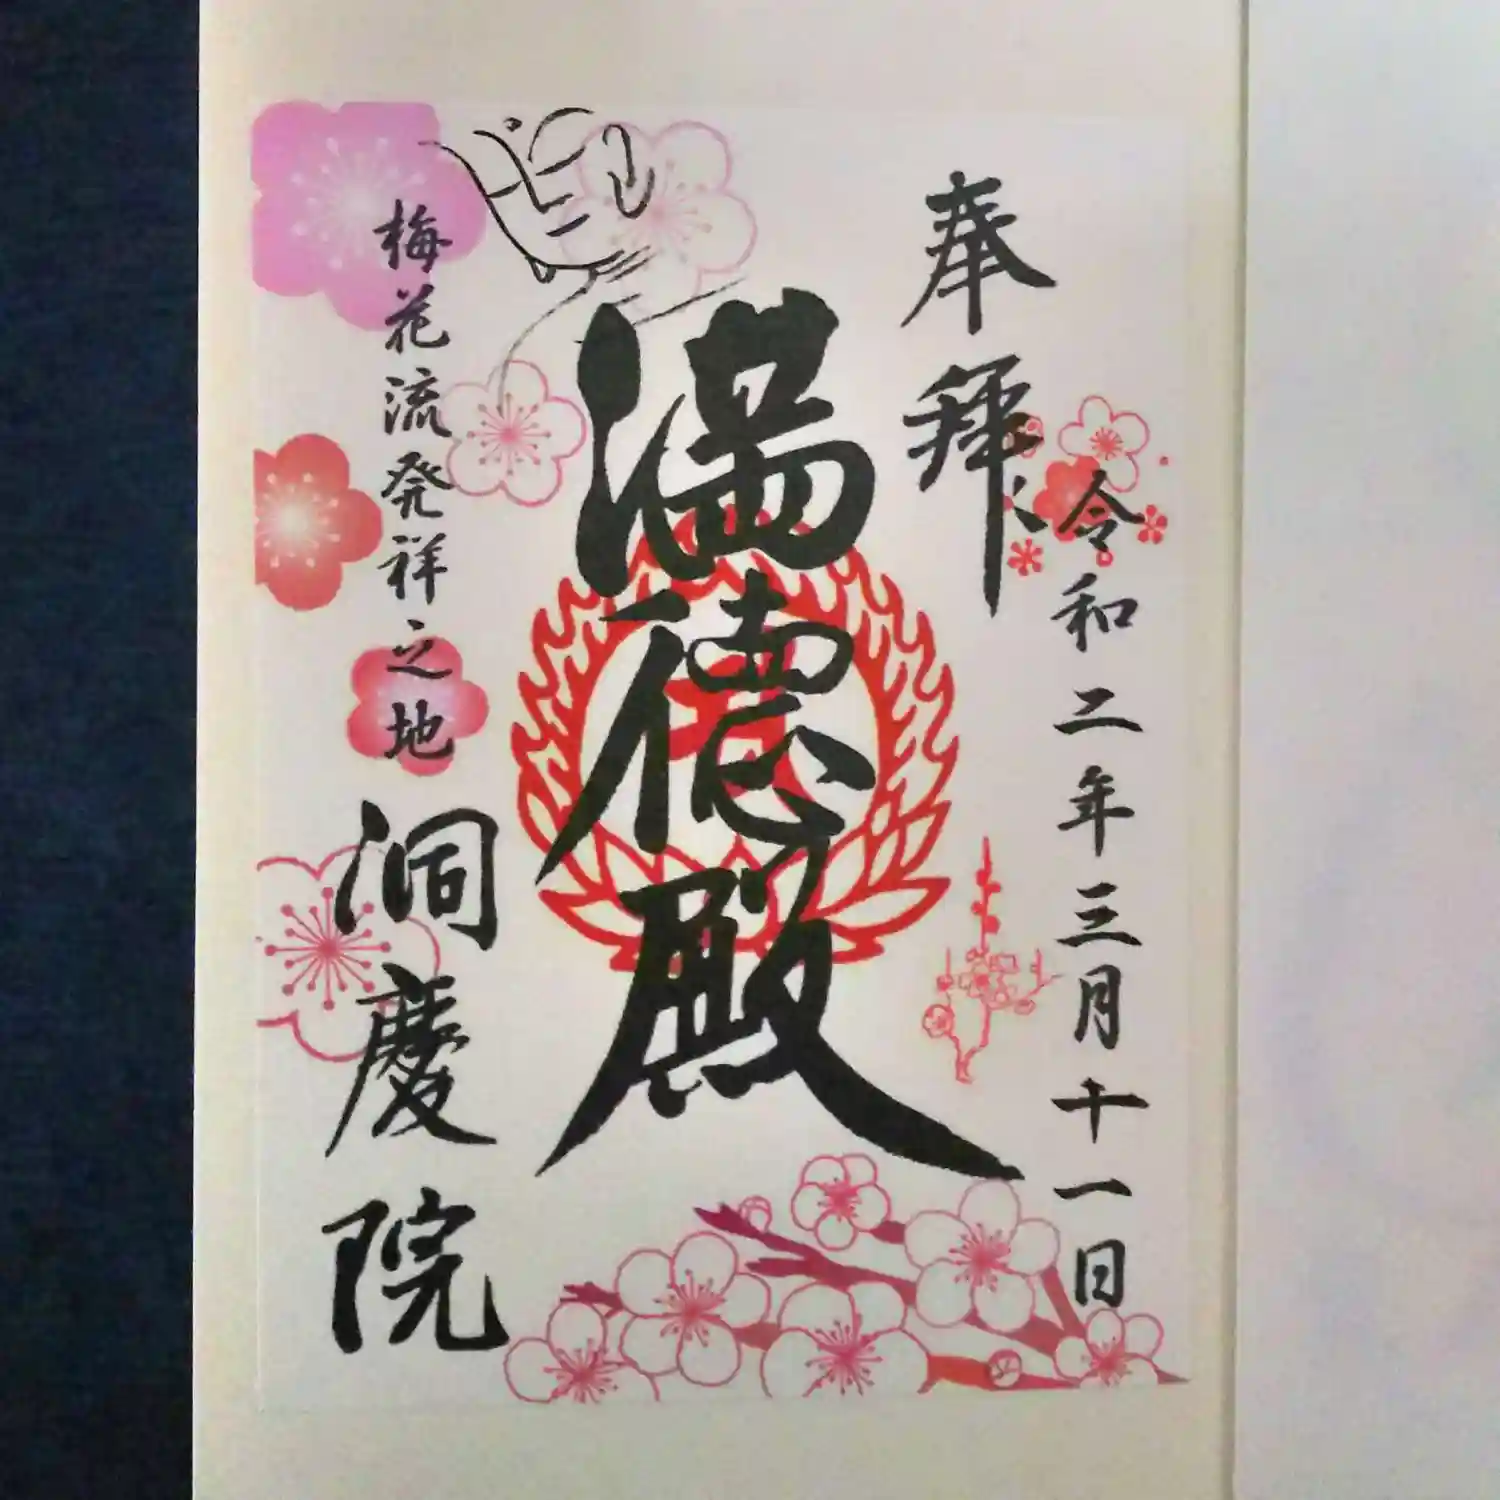 奉拜
令和二年三月十一日
満德殿
梅花流発祥之地
洞慶院